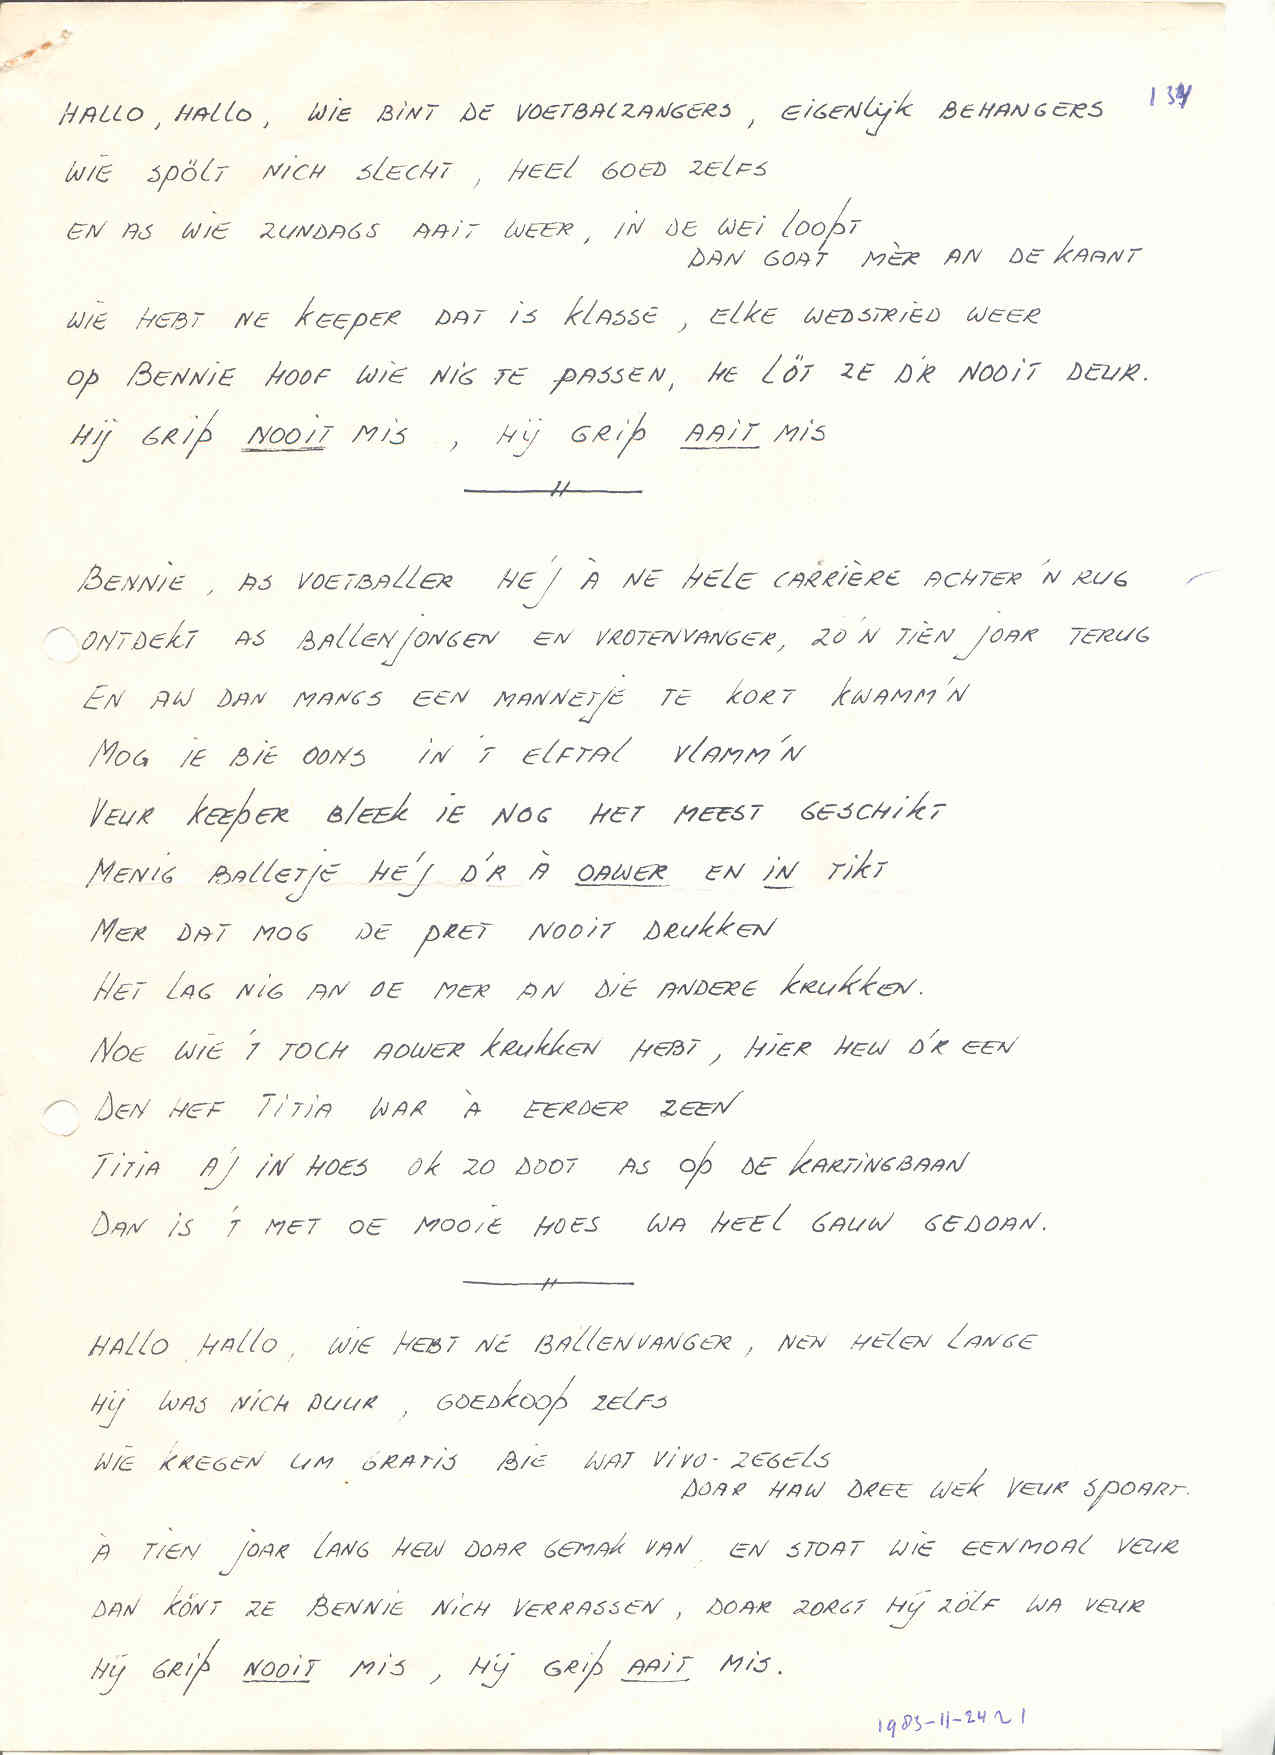 134
HALLO, HALLO, WIE BINT DE VOETBALZANGERS, EIGENLIJK BEHANGERS
WIE SPÖLT NICH SLECHT, HEEL GOED ZELFS
EN AS WIE ZUNDAGS AAIT WEER, IN DE WEI LOOPT
DAN GOAT MÈR AN DE KAANT
WIE HEBT NE KEEPER DAT IS KLASSE, ELKE WEDSTRIED WEER
OP BENNIE HOOF WIE NIG TE PASSEN, HE LÖT ZE D'R NOOIT DEUR.
HIJ GRIP NOOIT MIS, HIJ GRIP AAIT MIS
BENNIE, AS VOETBALLER HE'J À NE HELE CARRIÈRE ACHTER 'N RUG
ONTDEKT AS BALLENJONGEN EN VROTENVANGER, ZO'N TIEN JOAR TERUG
EN AW DAN MANGS EEN MANNETJE TE KORT KWAMM'N
MOG IE BIE OONS IN 'T ELFTAL VLAMM'N
VEUR KEEPER BLEEK IE NOG HET MEEST GESCHIKT
MENIG BALLETJE HE'J D'R À OAWER EN IN TIKT
MER DAT MOG DE PRET NOOIT DRUKKEN
HET LAG NIG AN OE MER AN DIE ANDERE KRUKKEN.
NOE WIE 'T TOCH AOWER KRUKKEN HEBT, HIER HEW D'R EEN
DEN HEF TITIA WAR À EERDER ZEEN
TITIA A'J IN HOES OK ZO DOOT AS OP DE KARTINGBAAN
DAN IS 'T MET OE MOOIE HOES WA HEEL GAUW GEDOAN.
HALLO HALLO, WIE HEBT NE BALLENVANGER, NEN HELEN LANGE
HIJ WAS NICH DUUR, GOEDKOOP ZELFS
WIE KREGEN UM GRATIS BIE WAT VIVO-ZEGELS
DOAR HAW DREE WEK VEUR SPOART.
À TIEN JOAR LANG HEW DOAR GEMAK VAN EN STOAT WIE EENMOAL VEUR
DAN KÖNT ZE BENNIE NICH VERRASSEN, DOAR ZORGT HIJ ZÖLF WA VEUR
HIJ GRIP NOOIT MIS, HIJ GRIP AAIT MIS.
1983-11-24 21